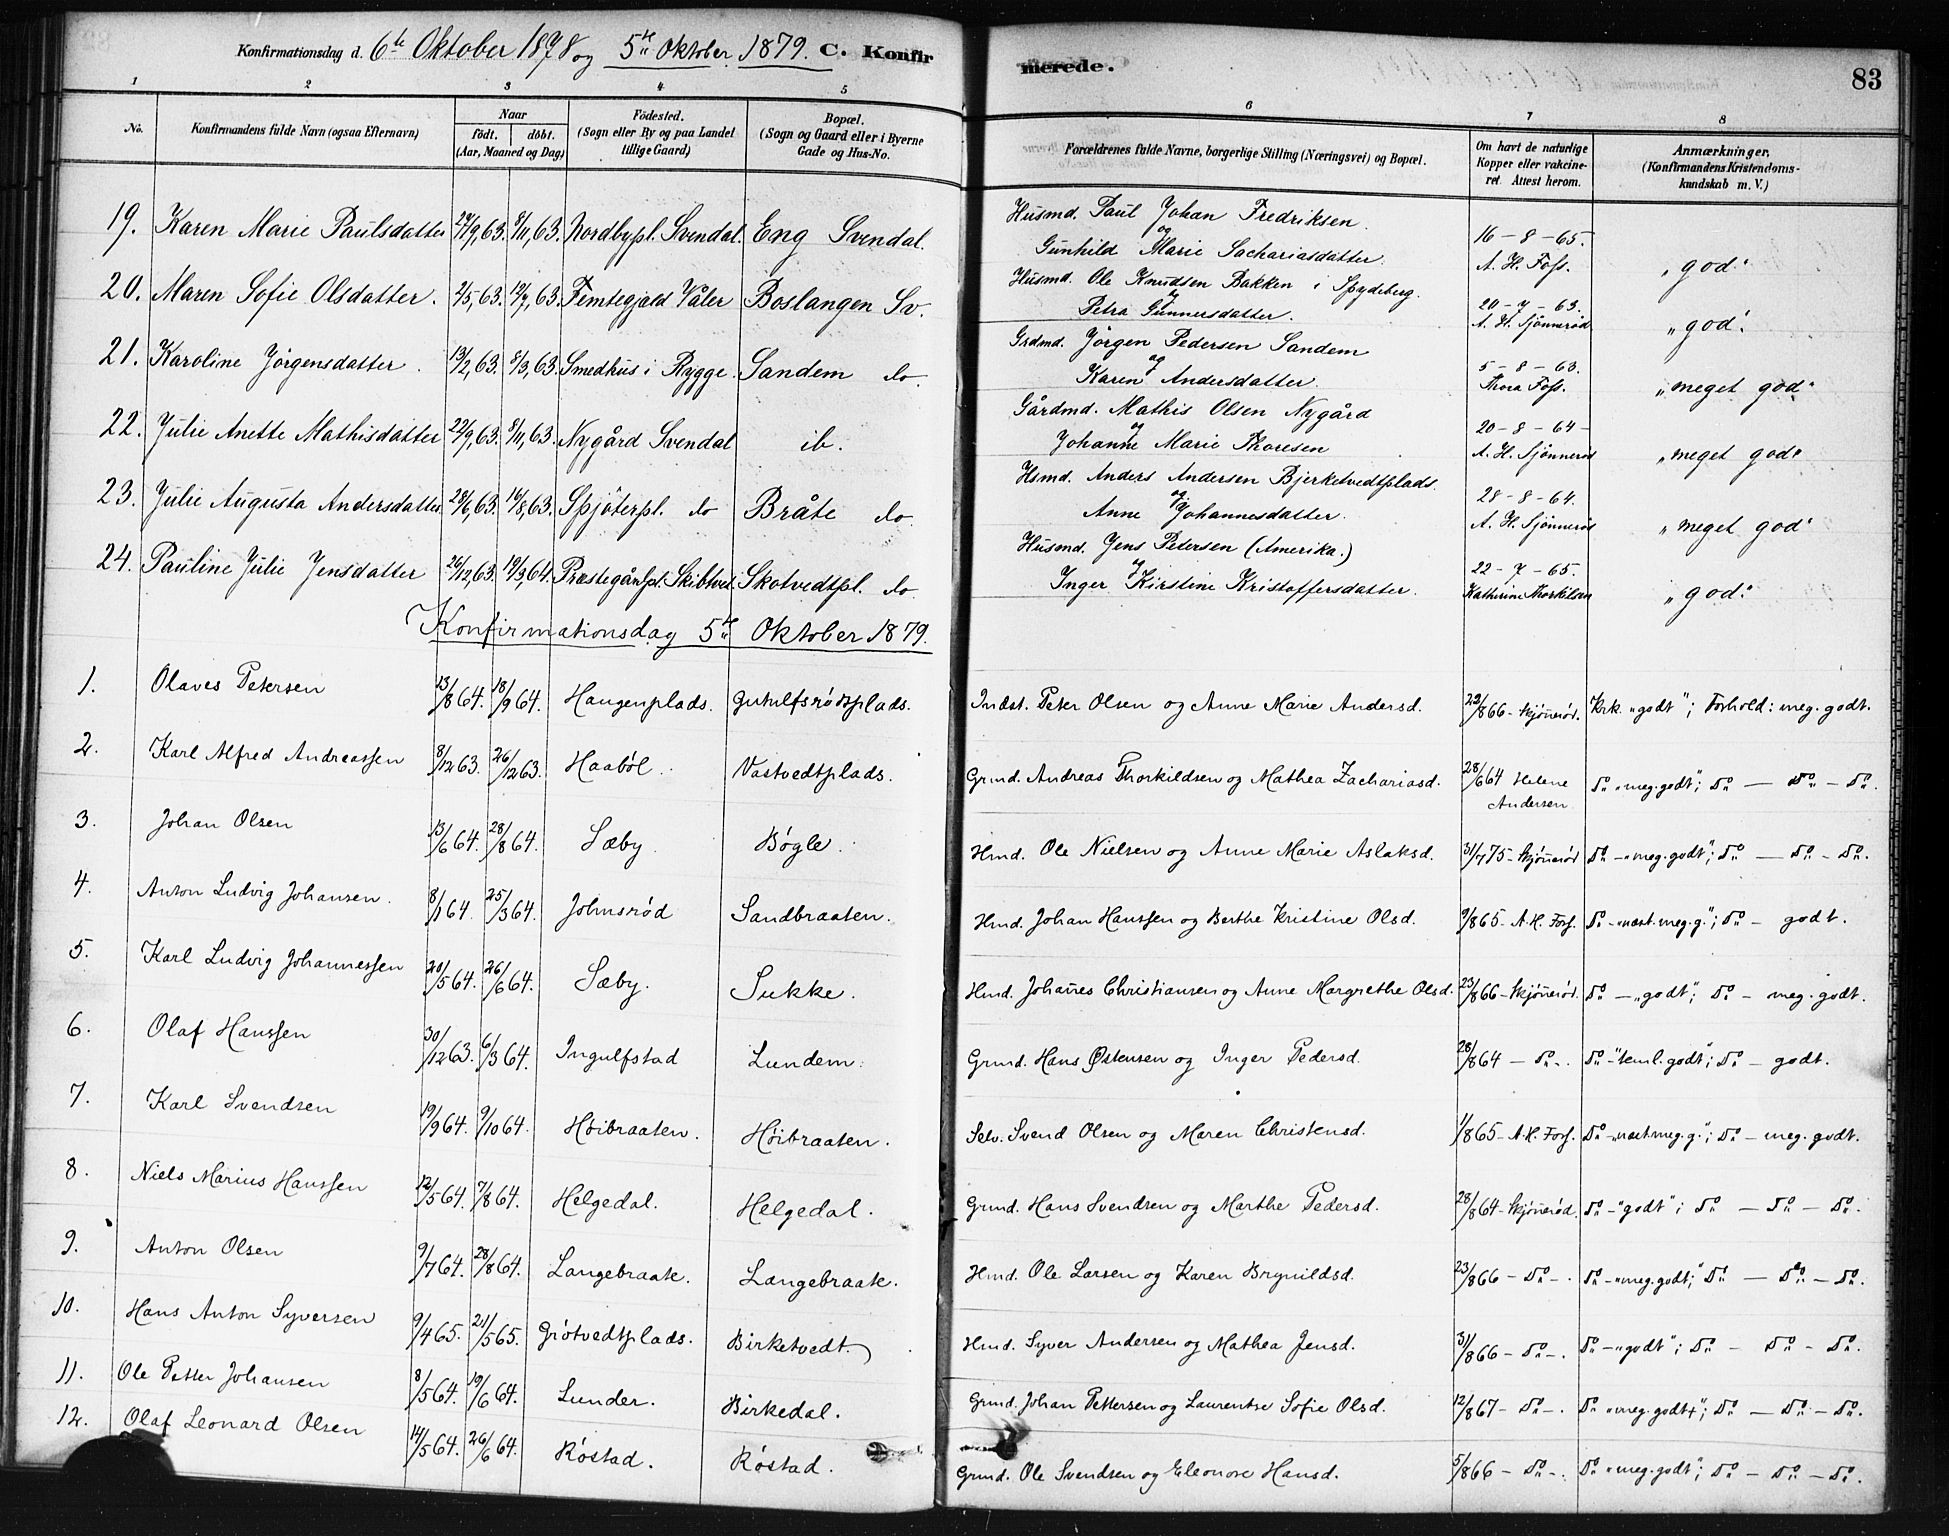 Konfirmationsdag d. 6te Oktober 1878 og 5te Oktober 1879. C. Konfirmerede. 83
1 2 3 4 5 6 7 8
No. Konfirmandens fulde Navn (ogsaa Efternavn) Naar födt. döbt. (Aar, Maaned og Dag) Födested. (Sogn eller By og paa Landet tillige Gaard) Bopæl. (Sogn og Gaard eller i Byerne Gade og Hus-No. Forældrenes fulde Navne, borgerlige Stilling (Næringsvei) og Bopæl. Om havt de naturlige Kopper eller vakcineret. Attest herom. Anmærkninger, (Konfirmandens Kristendomskundskab m. V.)
19. Karen Marie Paulsdatter 27/9,63. 8/11,63. Nordbypl. Svendal. Eng Svendal. Husmd. Paul Johan Fredriksen og Gunhild Marie Sachariasdatter. 16-8-65. A. H. Foss. "god."
20. Maren Sofie Olsdatter. 2/5,63. 12/7,63. Femtegjeld Våler Boslangen Sv. Husmd. Ole Knudsen Bakken i Spydeberg. og Petra Gunnersdatter. 20-7-63. A. H. Sjönnerød "god."
21. Karoline Jörgensdatter. 13/2,63. 8/3,63. Smedhus i Rygge. Sandem do. Grdmd. Jörgen Pedersen Sandem og Karen Andersdatter. 5-8-63. Thora Foss. "meget god"
22. Julie Anette Mathisdatter 22/9,63. 8/11,63. Nygård Svendal ib. Gårdmd. Mathis Olsen Nygård og Johanne Marie Thoresen 20-8-64- A. H. Sjönnerød "meget god"
23. Julie Augusta Andersdatter 28/6,63. 16/8,63. Spjöterpl. do Bråte do. Hsmd. Anders Andersen Bjerketvedtplads. og Anne Johannesdatter. 28-8-64. A. H. Sjönnerød "meget god"
24. Pauline Julie Jensdatter 26/12,63. 19/3,64. Præstegårdpl. Skibtvet. Skotvedtpl. do. Husmd. Jens Petersen (Amerika.) og Inger Kirstine Kristoffersdatter. 22-7-65. Kathrine Thorkilsen "god."
Konfirmationsdag 5te Oktober 1879.
1. Olaves Petersen 13/8 64. 18/9 64. Haugenplads. Gutulfsrødsplads. Indst. Peter Olsen og Anne Marie Andersd. 22/8 66 - Skjønnerød. Krk. "godt"; Forhold: meg. godt.
2. Karl Alfred Andreassen 8/12 63. 26/12 63. Haabøl. Vastvedtplads. Grmd. Andreas Thorkildsen og Mathea Zachariasd. 28/6 64 Helene Andersen Do "meg. godt"; Do — Do - Do.
3. Johan Olsen 13/6 64. 28/8 64. Sæby. Bøgle. Hmd. Ole Nielsen og Anne Marie Aslaksd. 31/7 75 - Skjønnerød Do - "meg. godt"; Do — Do - Do.
4. Anton Ludvig Johansen. 8/1 64. 25/3 64. Johnsrød Sandbraaten. Hmd. Johan Hanssen og Berthe Kristine Olsd. 9/8 65 - A. H. Foss. Do - "næst. meg. g."; Do - godt.
5. Karl Ludvig Johannessen 20/5 64. 26/6 64. Sæby. Sukke. Hmd. Johannes Christiansen og Anne Margrethe Olsd. 23/8 66 - Skjønnerød. Do — "godt"; Do - meg. godt.
6. Olaf Hanssen 30/12 63. 6/3 64. Ingulfstad Lundem. Grmd. Hans Østensen og Inger Pedersd. 28/8 64 - Do -. Do - "teml. godt"; Do - godt.
7. Karl Svendsen 19/9 64. 9/10 64. Høibraaten. Høibraaten. Selv. Svend Olsen og Maren Christensd. 1/8 65 - A. H. Foss. Do - "næst meg. g."; Do - meg. godt.
8. Niels Marius Hanssen 12/5 64. 7/8 64. Helgedal. Helgedal. Grmd. Hans Svendsen og Marthe Pedersd. 28/8 64 - Skjønnerød. Do - "godt"; Do — Do - Do.
9. Anton Olsen 9/7 64. 28/8 64. Langebraak. Langebraak. Hmd. Ole Larsen og Karen Brynildsd. 23/8 66 - Do -. Do - "meg. godt"; Do — Do - Do.
10. Hans Anton Syversen 9/4 65. 21/5 65. Grøtvedtplads. Birketvedt. Hmd. Syver Andersen og Mathea Jensd. 31/8 66 - Do -. Do - "godt"; Do - Do - Do.
11. Ole Petter Johansen 8/5 64. 19/6 64. Lunder. Birkedal. Grmd. Johan Pettersen og Laurentse Sofie Olsd. 12/8 67 - Do -. Do "meg. godt+"; Do — Do - Do.
12. Olaf Leonard Olsen 14/5 64. 26/6 64. Røstad. Røstad. Grmd. Ole Svendsen og Eleonore Hansd. 5/8 66 - Do -. Do "meg. godt"; Do - Do - Do.